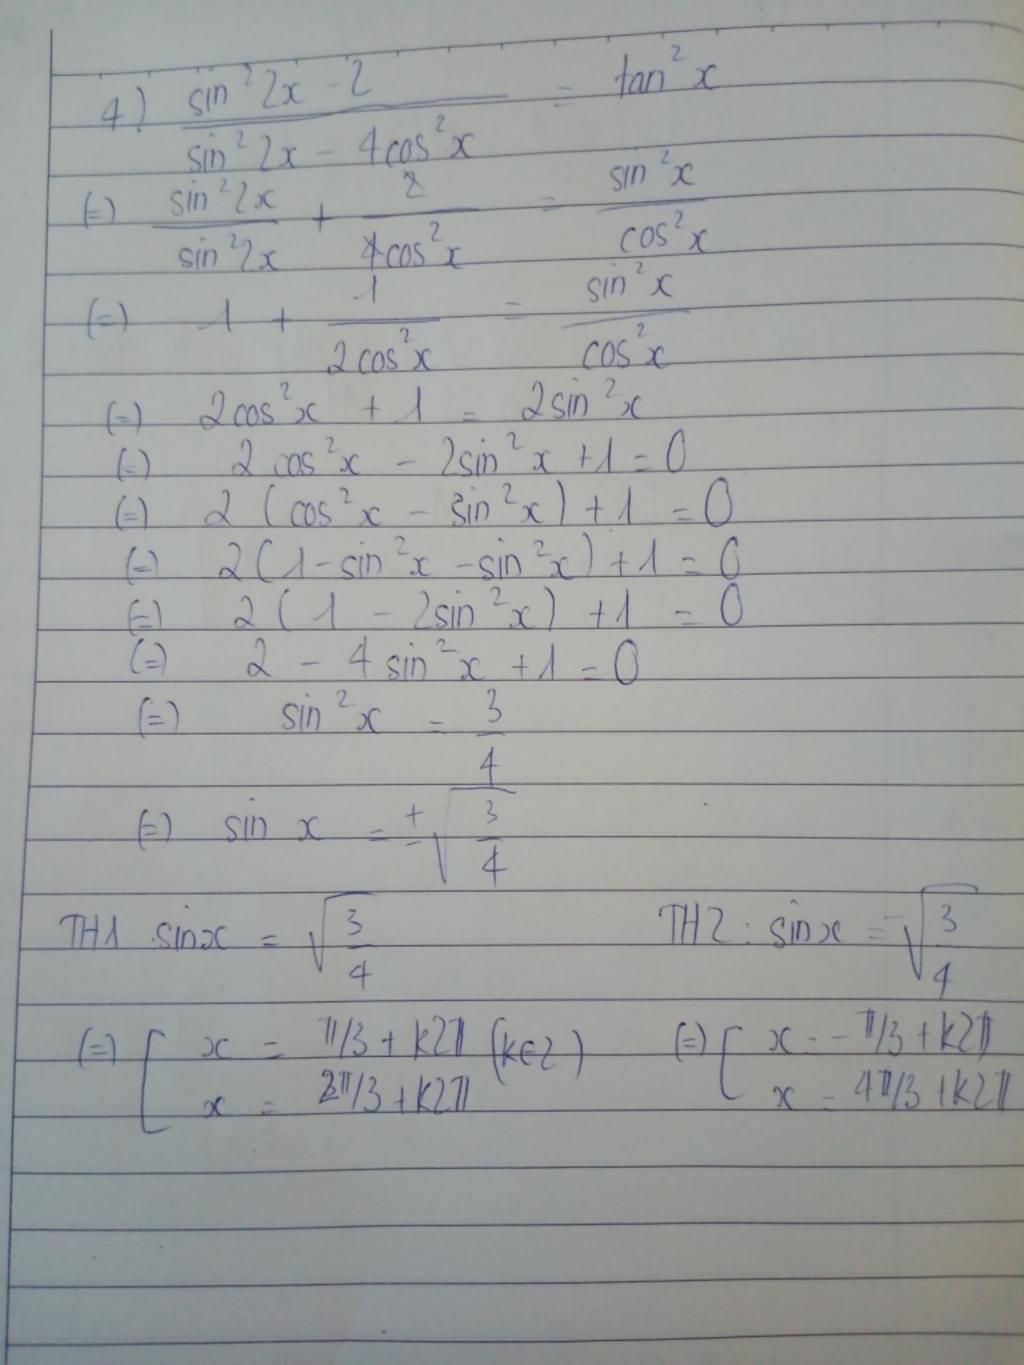 4) (sin²2x - 2)/(sin²2x - 4cos²x) = tan²x
(=) sin²2x/sin²2x + 2/4cos²x = sin²x/cos²x
(=) 1 + 1/2cos²x = sin²x/cos²x
(=) 2cos²x + 1 = 2sin²x
(=) 2cos²x - 2sin²x + 1 = 0
(=) 2(cos²x - sin²x) + 1 = 0
(=) 2(1 - sin²x - sin²x) + 1 = 0
(=) 2(1 - 2sin²x) + 1 = 0
(=) 2 - 4sin²x + 1 = 0
(=) sin²x = 3/4
(=) sin x = ±√(3/4)
TH1 sinx = √(3/4) TH2: sinx = -√(3/4)
(=) [ x = π/3 + k2π (k∈Z) (=) [ x = -π/3 + k2π
x = 2π/3 + k2π x = 4π/3 + k2π